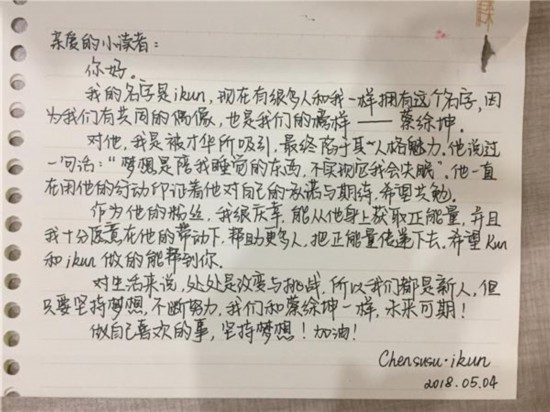 亲爱的小读者：
你好。
我的名字是ikun，现在有很多人和我一样拥有这个名字，因
为我们有共同的偶像，也是我们的榜样——蔡徐坤。
对他，我是被才华所吸引，最终陷于其人格魅力。他说过
一句话：“梦想是陪我睡觉的东西，不实现它我会失眠”。他一直
在用他的行动印证着他对自己的承诺与期待，希望共勉。
作为他的粉丝，我很庆幸，能从他身上获取正能量，并且
我十分愿意在他的带动下，帮助更多人，把正能量传递下去。希望kun
和ikun做的能帮到你。
对生活来说，处处是改变与挑战，所以我们都是新人，但
只要坚持梦想，不断努力，我们和蔡徐坤一样，未来可期！
做自己喜欢的事，坚持梦想！加油！
Chensusu·ikun
2018.05.04